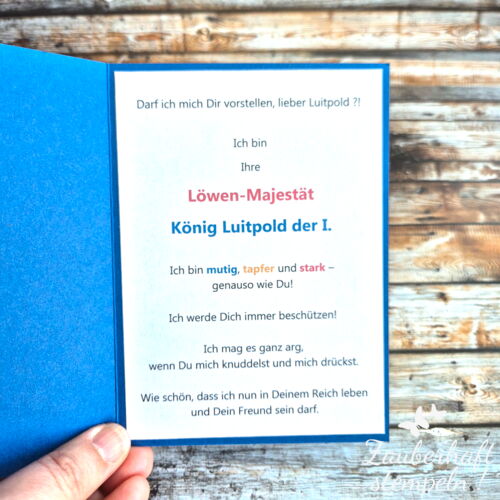 Darf ich mich Dir vorstellen, lieber Luitpold ?!
Ich bin
Ihre
Löwen-Majestät
König Luitpold der I.
Ich bin mutig, tapfer und stark –
genauso wie Du!
Ich werde Dich immer beschützen!
Ich mag es ganz arg,
wenn Du mich knuddelst und mich drückst.
Wie schön, dass ich nun in Deinem Reich leben
und Dein Freund sein darf.
Zauberhaft
stempeln !